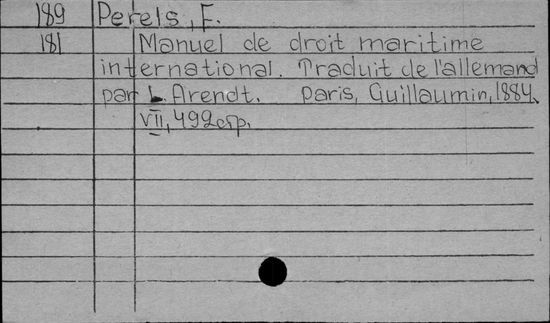 189 Perels, F.
181 Manuel de droit maritime
international. Traduit de l'allemand
par L. Arendt. Paris, Guillaumin, 1884.
VII, 492 p.